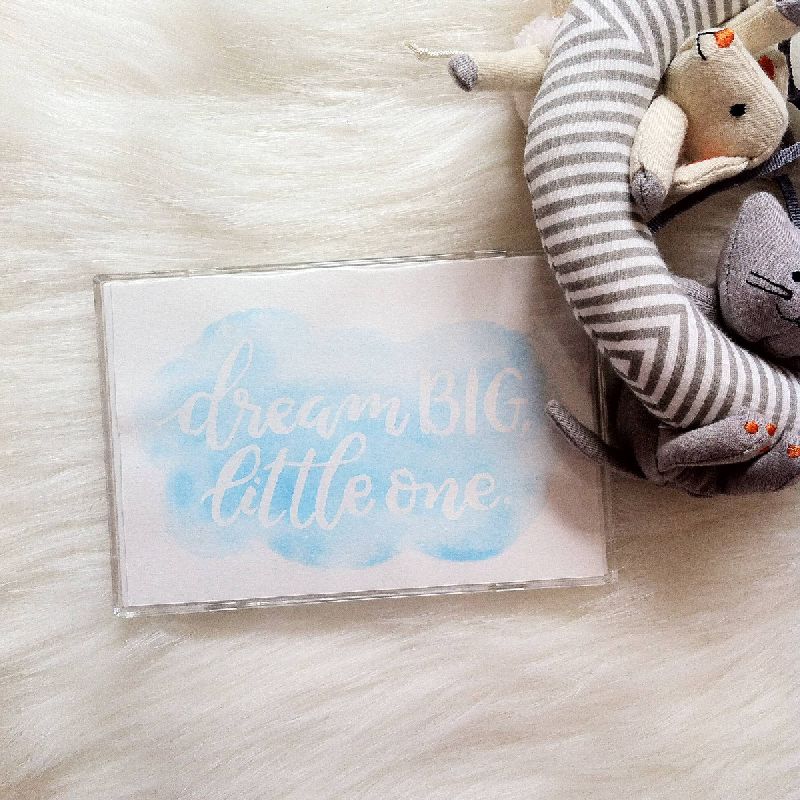 dream BIG,
little one.